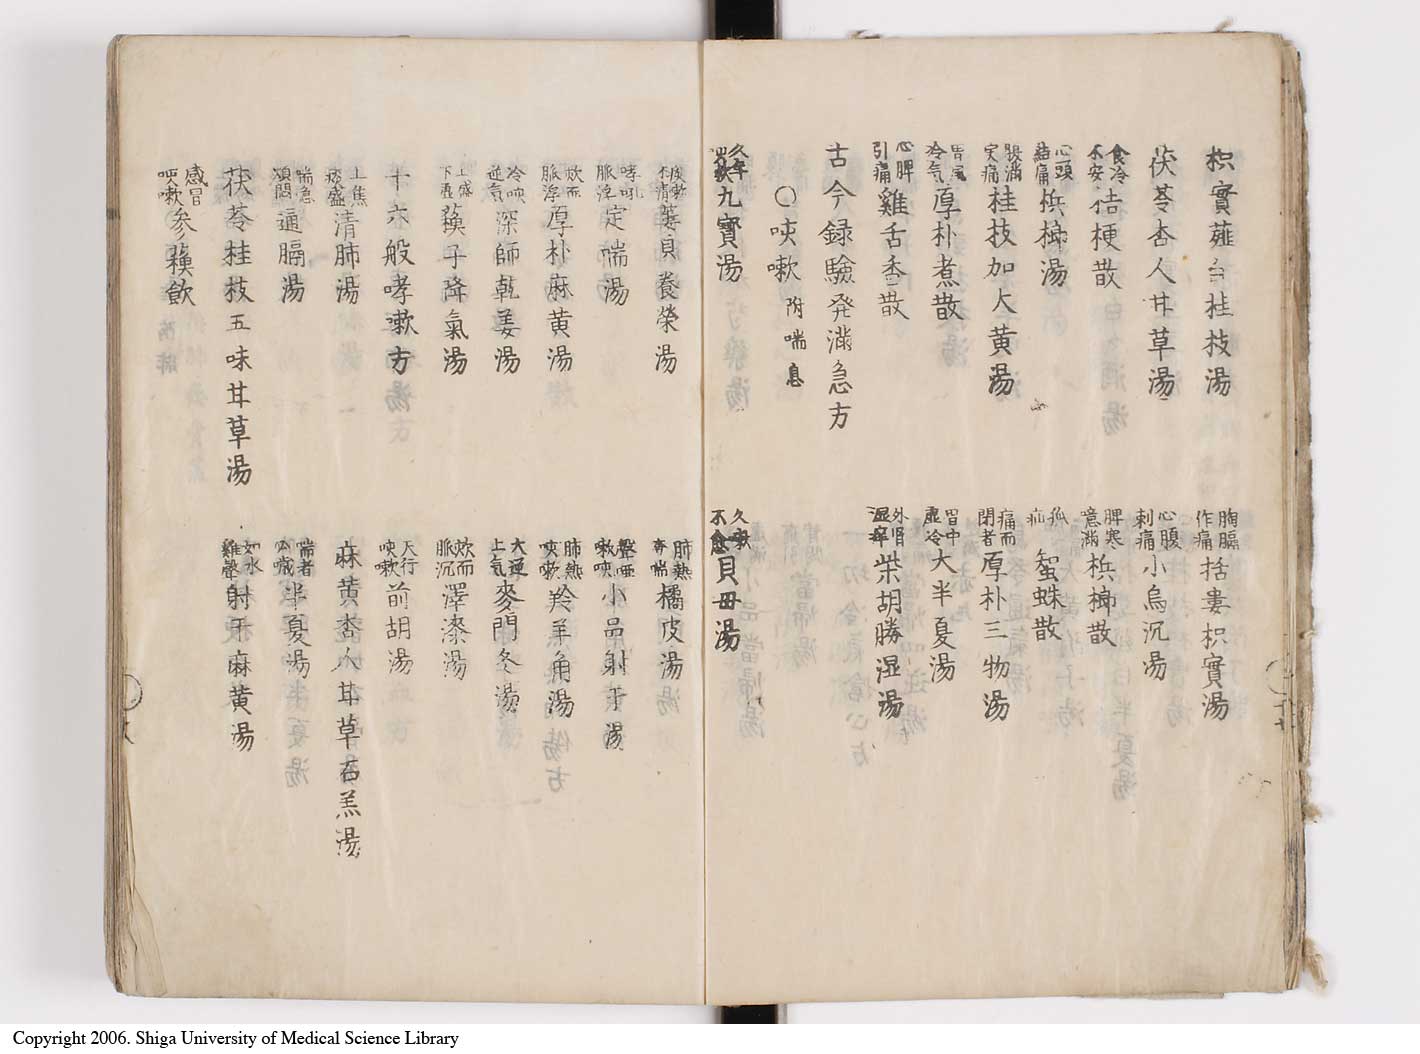 枳實薤白桂枝湯
胸膈作痛 括婁枳實湯
茯苓杏人甘草湯
心腹刺痛 小烏沉湯
食冷不安 桔梗散
脾寒噫満 梹榔散
心頭結痛 梹榔湯
狐疝 蜘蛛散
腹満実痛 桂枝加大黄湯
痛而閉者 厚朴三物湯
胃風冷气 厚朴煮散
胃中虚冷 大半夏湯
心脾引痛 雞舌香散
外胃湿卒 柴胡勝湿湯
古今録驗発満急方
〇咳嗽 附喘息
久年 九寳湯
久嗽不愈 貝母湯
蔞貝養榮湯
肺熱 喘 橘皮湯
哮吼脈浮 定喘湯
聲唖嗽 小品射干湯
欬而脈浮 厚朴麻黄湯
肺熱咳嗽 羚羊角湯
冷咳逆気 深師乾姜湯
大逆上气 麥門冬湯
上盛下虚 蘓子降氣湯
欬而脈沉 澤漆湯
十六般哮嗽方
天行咳嗽 前胡湯
上焦痰盛 清肺湯
麻黄杏人甘草石羔湯
喘急煩悶 通膈湯
喘者 半夏湯
茯苓桂枝五味甘草湯
如水雞聲 射干麻黄湯
感冒咳嗽 参蘓飲
Copyright 2006. Shiga University of Medical Science Library